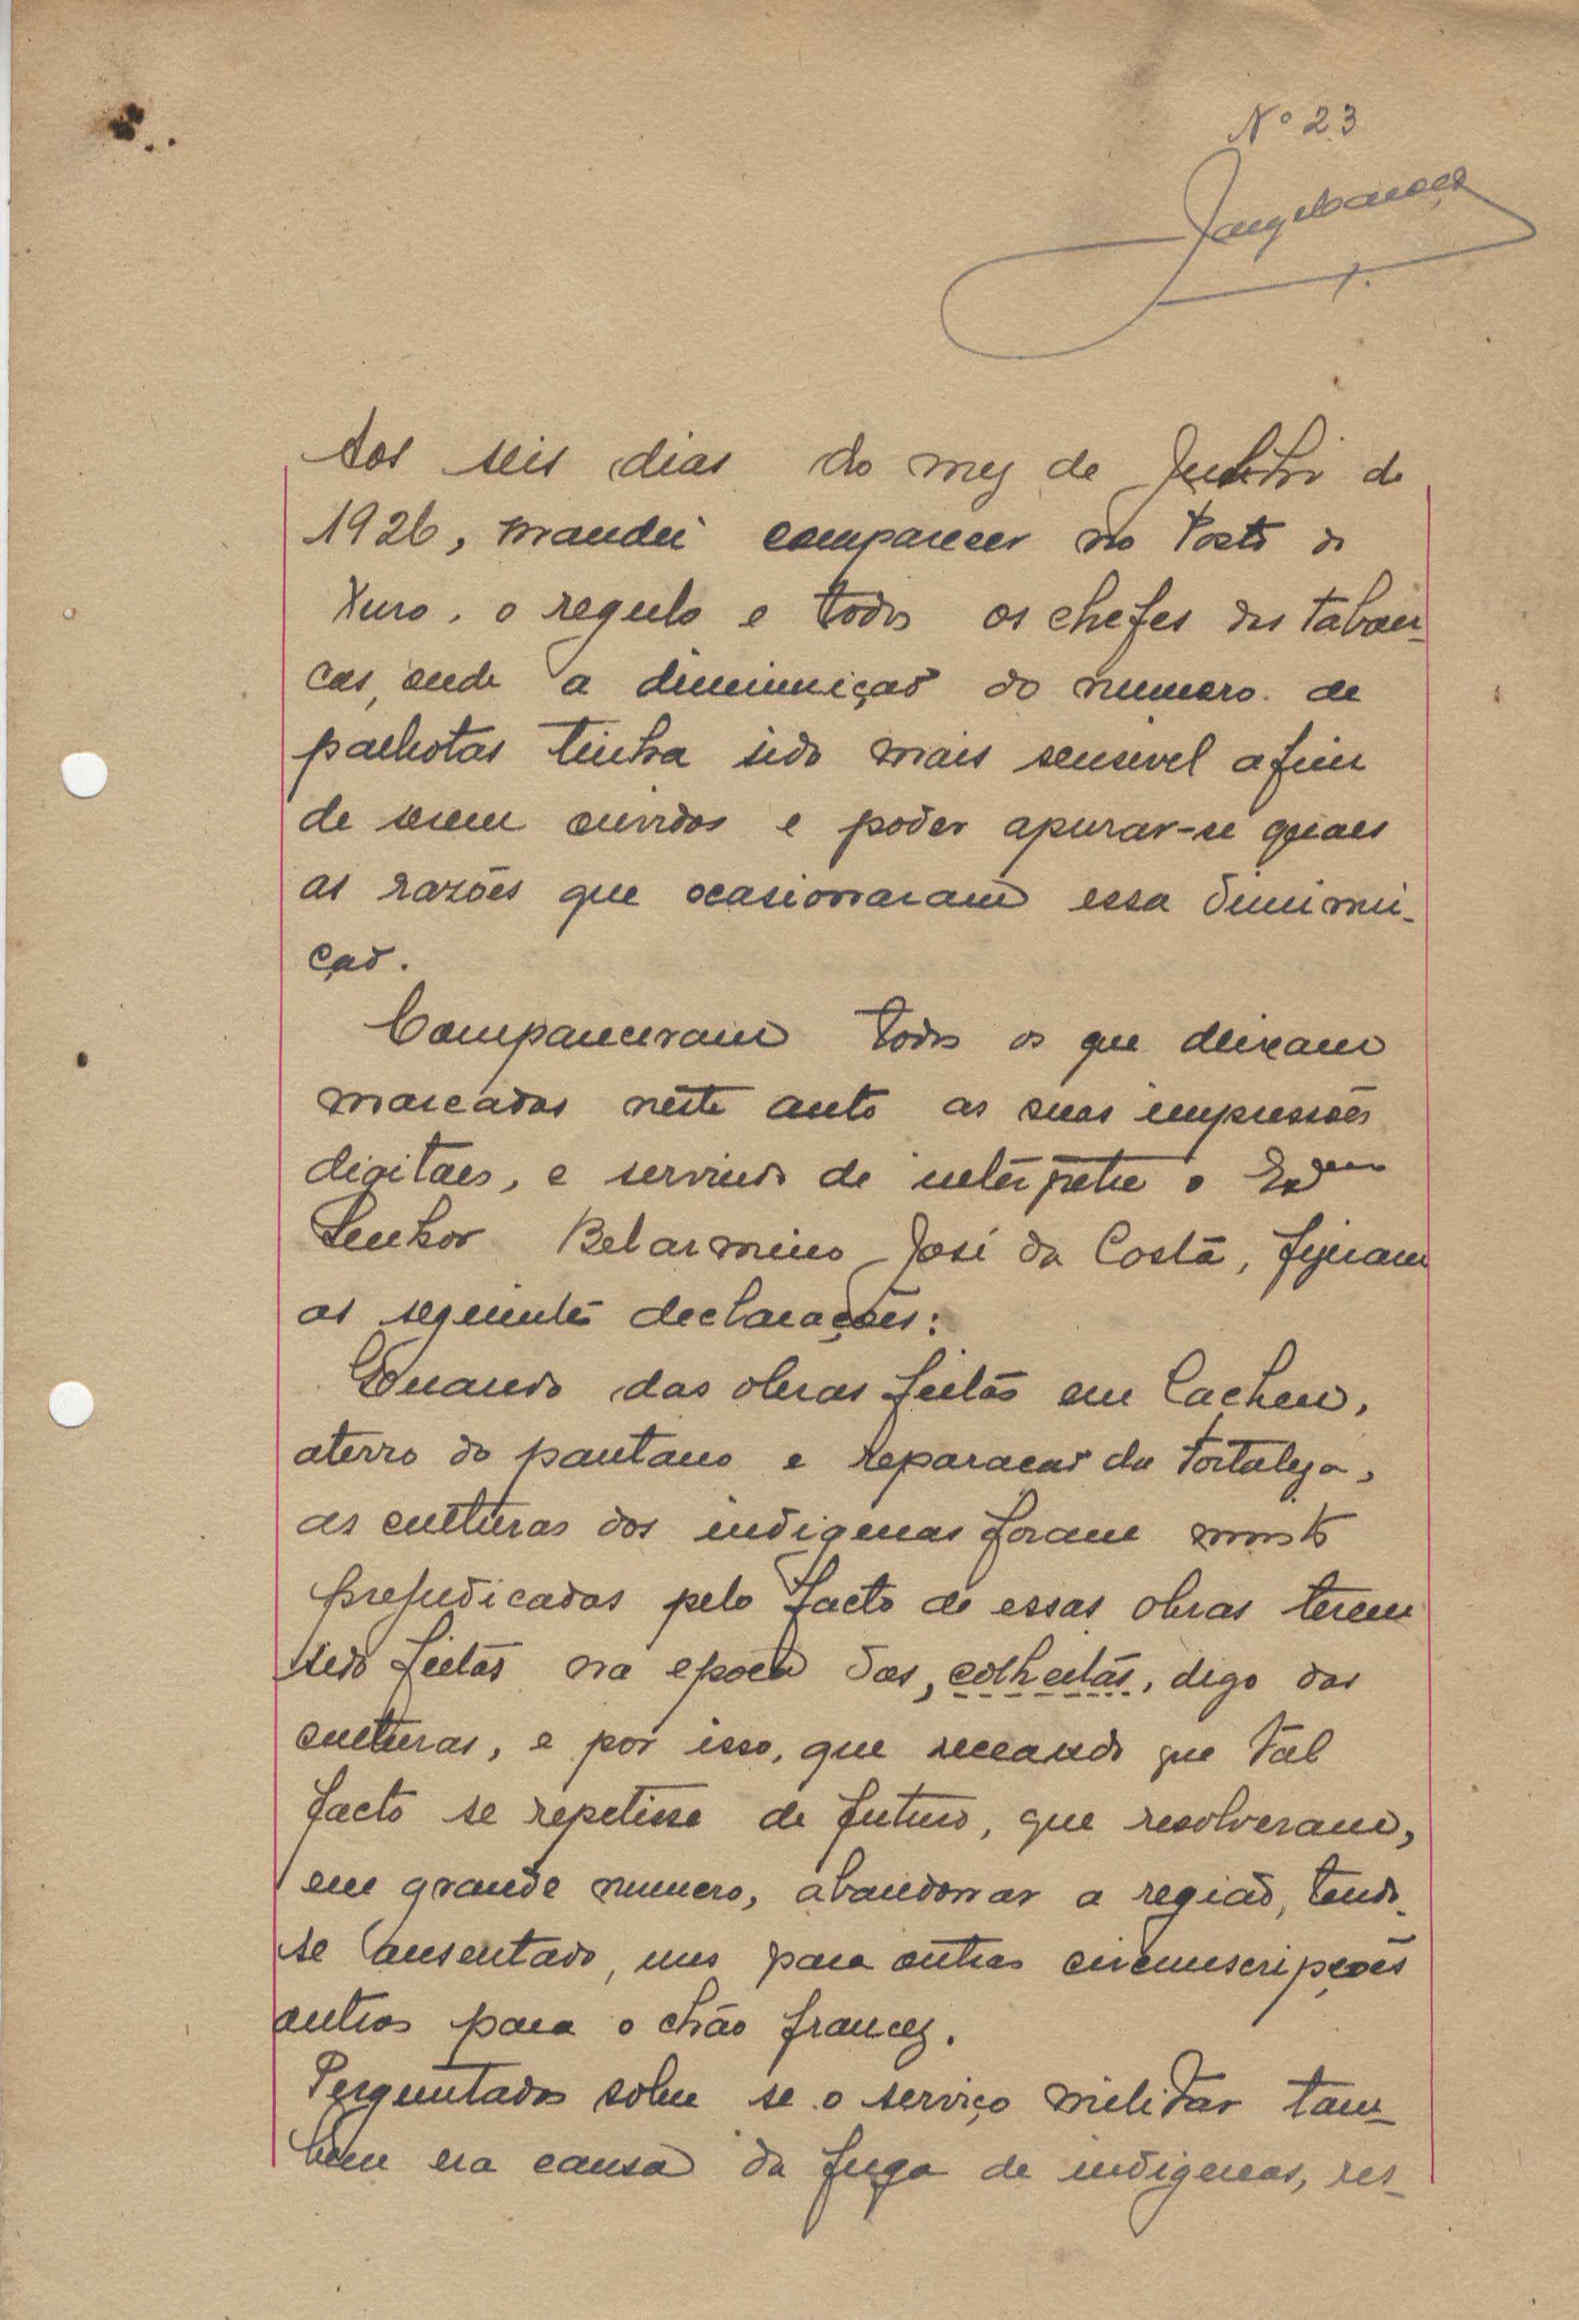 Nº 23
Aos seis dias do mez de Julho de
1926, mandei comparecer no Posto de
Xuro, o regulo e todos os chefes das taban-
cas, onde a diminuição do numero de
palhotas tinha sido mais sensivel afim
de serem ouvidos e poder apurar-se quaes
as razões que ocasionaram essa diminui-
ção.
Compareceram todos os que deixam
marcadas neste auto as suas impressões
digitaes, e servindo de interprete o Exmo
Senhor Belarmino José da Costa, fizeram
as seguintes declarações:
Quando das obras feitas em Cacheu,
aterro do pantano e reparacão da Fortaleza,
as culturas dos indigenas foram muito
prejudicadas pelo facto de essas obras terem
sido feitas na epoca das, colheitas, digo das
culturas, e por isso, que receando que tal
facto se repetisse de futuro, que resolveram,
em grande numero, abandonar a região, tendo-
se ausentado, uns para outras circunscripções
outros para o chão francez.
Perguntados sobre se o serviço militar tam-
bem era causa da fuga de indigenas, res-